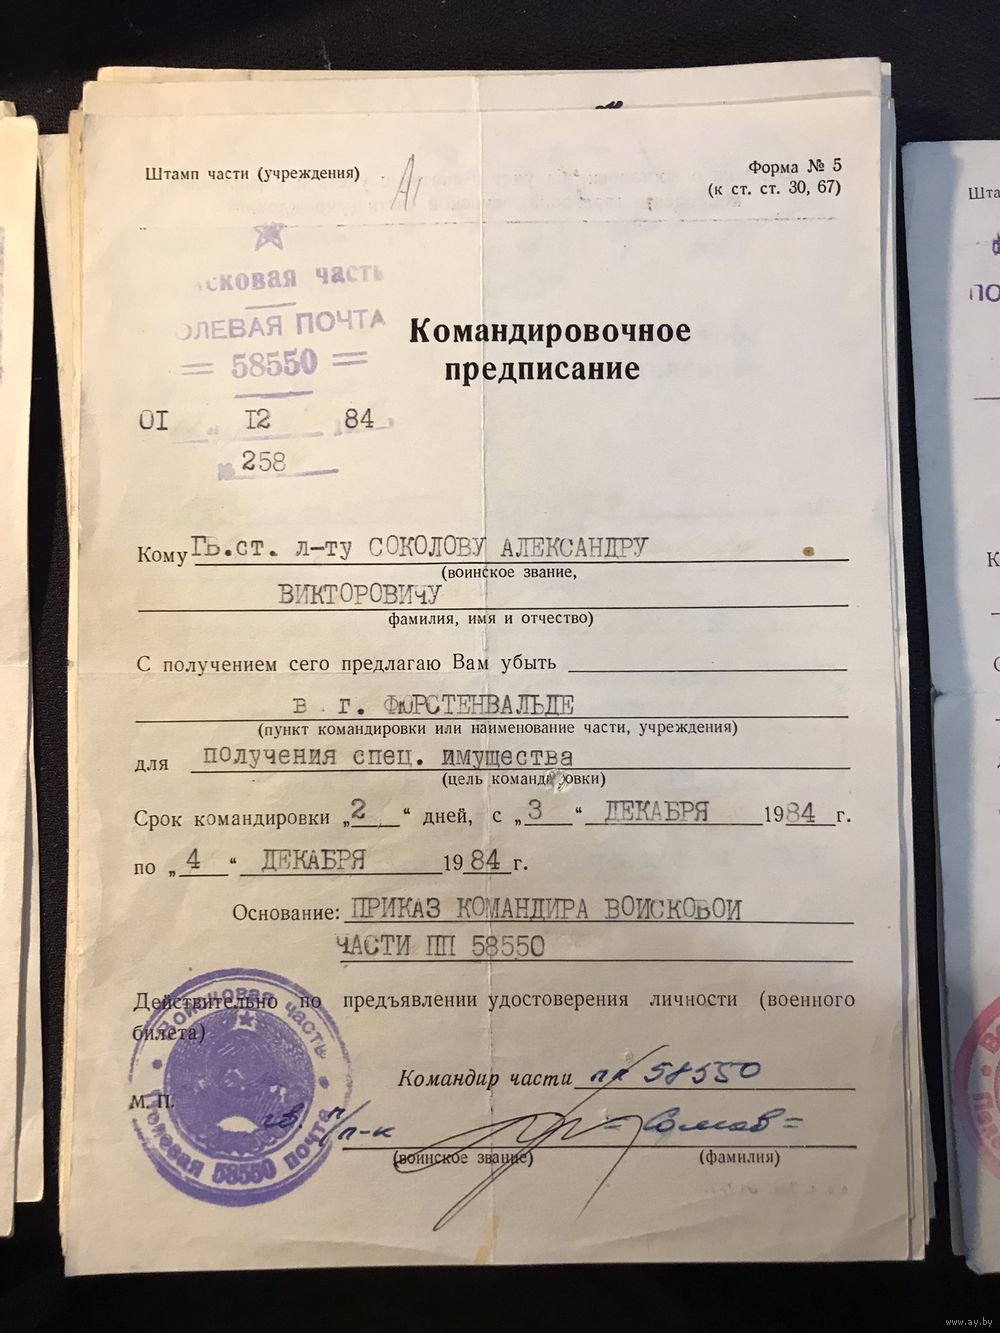 Штамп части (учреждения)
Форма № 5
(к ст. ст. 30, 67)
сковая часть
ОЛЕВАЯ ПОЧТА
= 58550 =
Командировочное
предписание
01 " 12 84
№ 258
Кому Гв.ст. л-ту СОКОЛОВУ АЛЕКСАНДРУ
(воинское звание,
ВИКТОРОВИЧУ
фамилия, имя и отчество)
С получением сего предлагаю Вам убыть
в г. ФЮРСТЕНВАЛЬДЕ
(пункт командировки или наименование части, учреждения)
для получения спец. имущества
(цель командировки)
Срок командировки „2“ дней, с „3“ ДЕКАБРЯ 1984 г.
по „4“ ДЕКАБРЯ 1984 г.
Основание: ПРИКАЗ КОМАНДИРА ВОИСКОВОИ
ЧАСТИ ПП 58550
Действительно по предъявлении удостоверения личности (военного
билета)
Командир части пп 58550
М. П.
гв. п/п-к
(воинское звание)
(фамилия)
Войсковая часть
Полевая почта 58550
Шта
ПО
К
С
www.ay.by